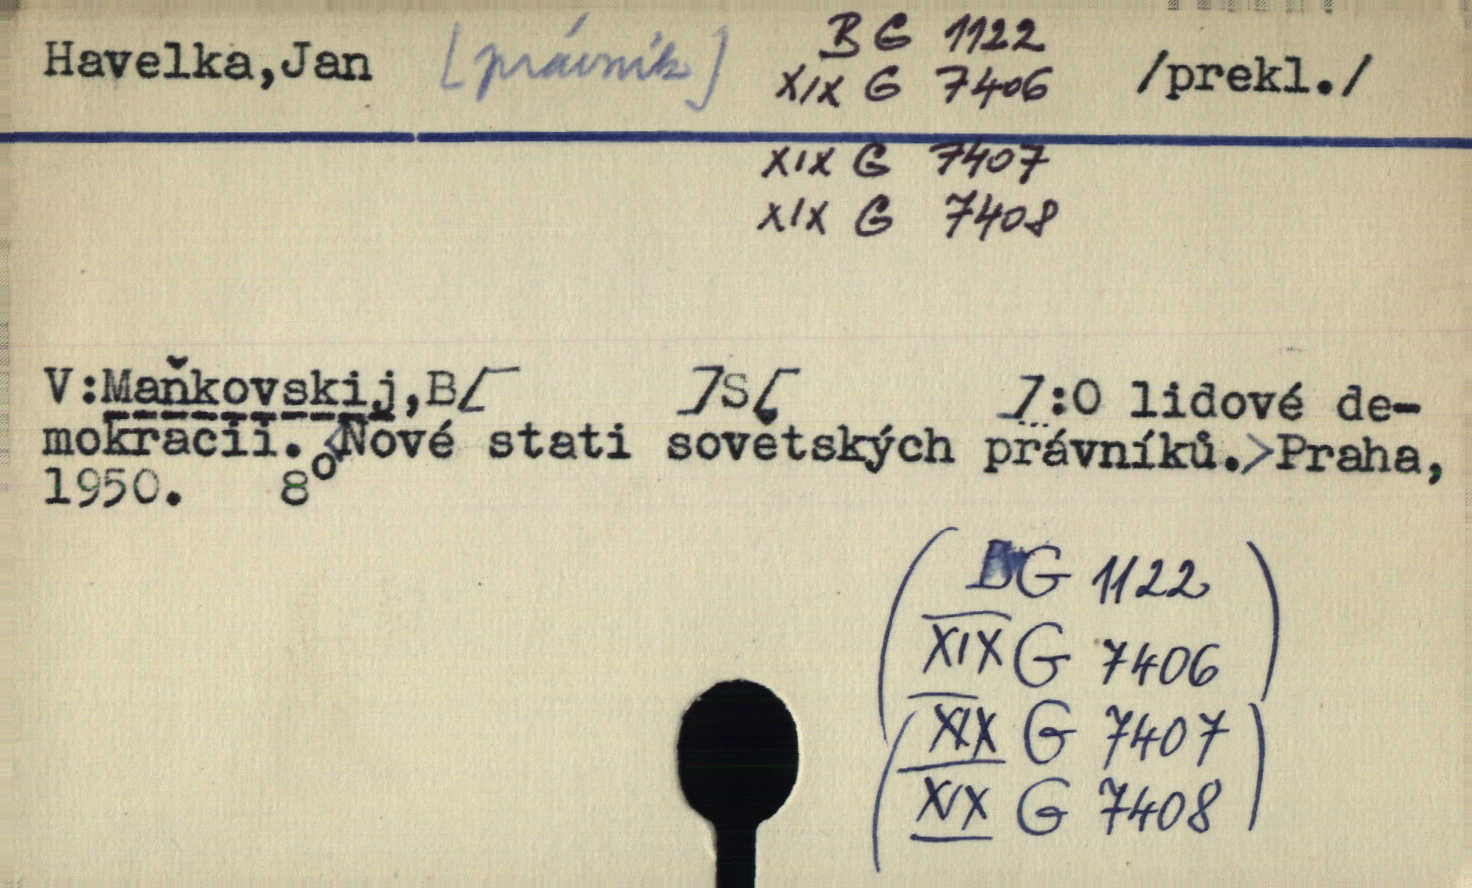 Havelka,Jan [právník] BG 1122 /prekl./
XIX G 7406
XIX G 7407
XIX G 7408
V:Maňkovskij,B[ ]S[ ]:O lidové de-
mokracii. <Nové stati sovětských právníků.>Praha,
1950. 8°
(BG 1122)
XIX G 7406
(XIX G 7407)
XIX G 7408